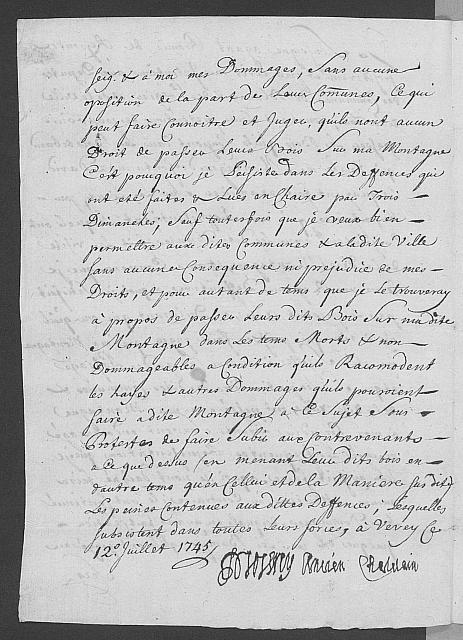 seig.r & à moi mes Dommages, Sans aucune
oposition de la part de Leurs Comūnes, Ce qui
peut faire Connoitre et Juger, quils nont aucun
Droit de passer Leurs Bois Sur ma Montagne
C'est pourquoi je Persiste dans Les Deffences qui
ont eté faites & Lües en Chaire par Trois
Dimanches, Sauf toutesfois que je veux bien
permettre aux dites Communes & aladite Ville
sans aucune Consequence ni prejudice de mes
Droits, et pour autant de tems que je Le trouveray
à propos de passer Leurs dits Bois Sur madite
Montagne dans Les tems Morts & non
Dommageables a Condition quils Racomodent
les hayes & autres Dommages quils pouroient
faire adite Montagne à Ce Sujet Sous
Protestes de faire Subir aux Contrevenants
a Ce que dessus en menant Leur dits bois en
dautre tems qu'en Cellui et de la Maniere Susdite
Les peines Contenues aux dittes Deffences, Lesquelles
Subsistent dans toutes Leurs forces, à Vevey Ce
12.e Juillet 1745
Ancien Chatelain